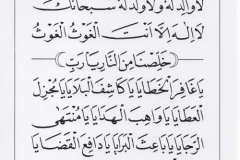 لاوالد له ولاولد له سبحانك
لا اله الا انت الغوث الغوث
خلصنا من النار يا رب
يا غافر الخطايا يا كاشف البلايا يا مجزل
العطايا يا واهب الهدايا يا منتهى
الرجايا يا باعث البرايا يا دافع القضايا